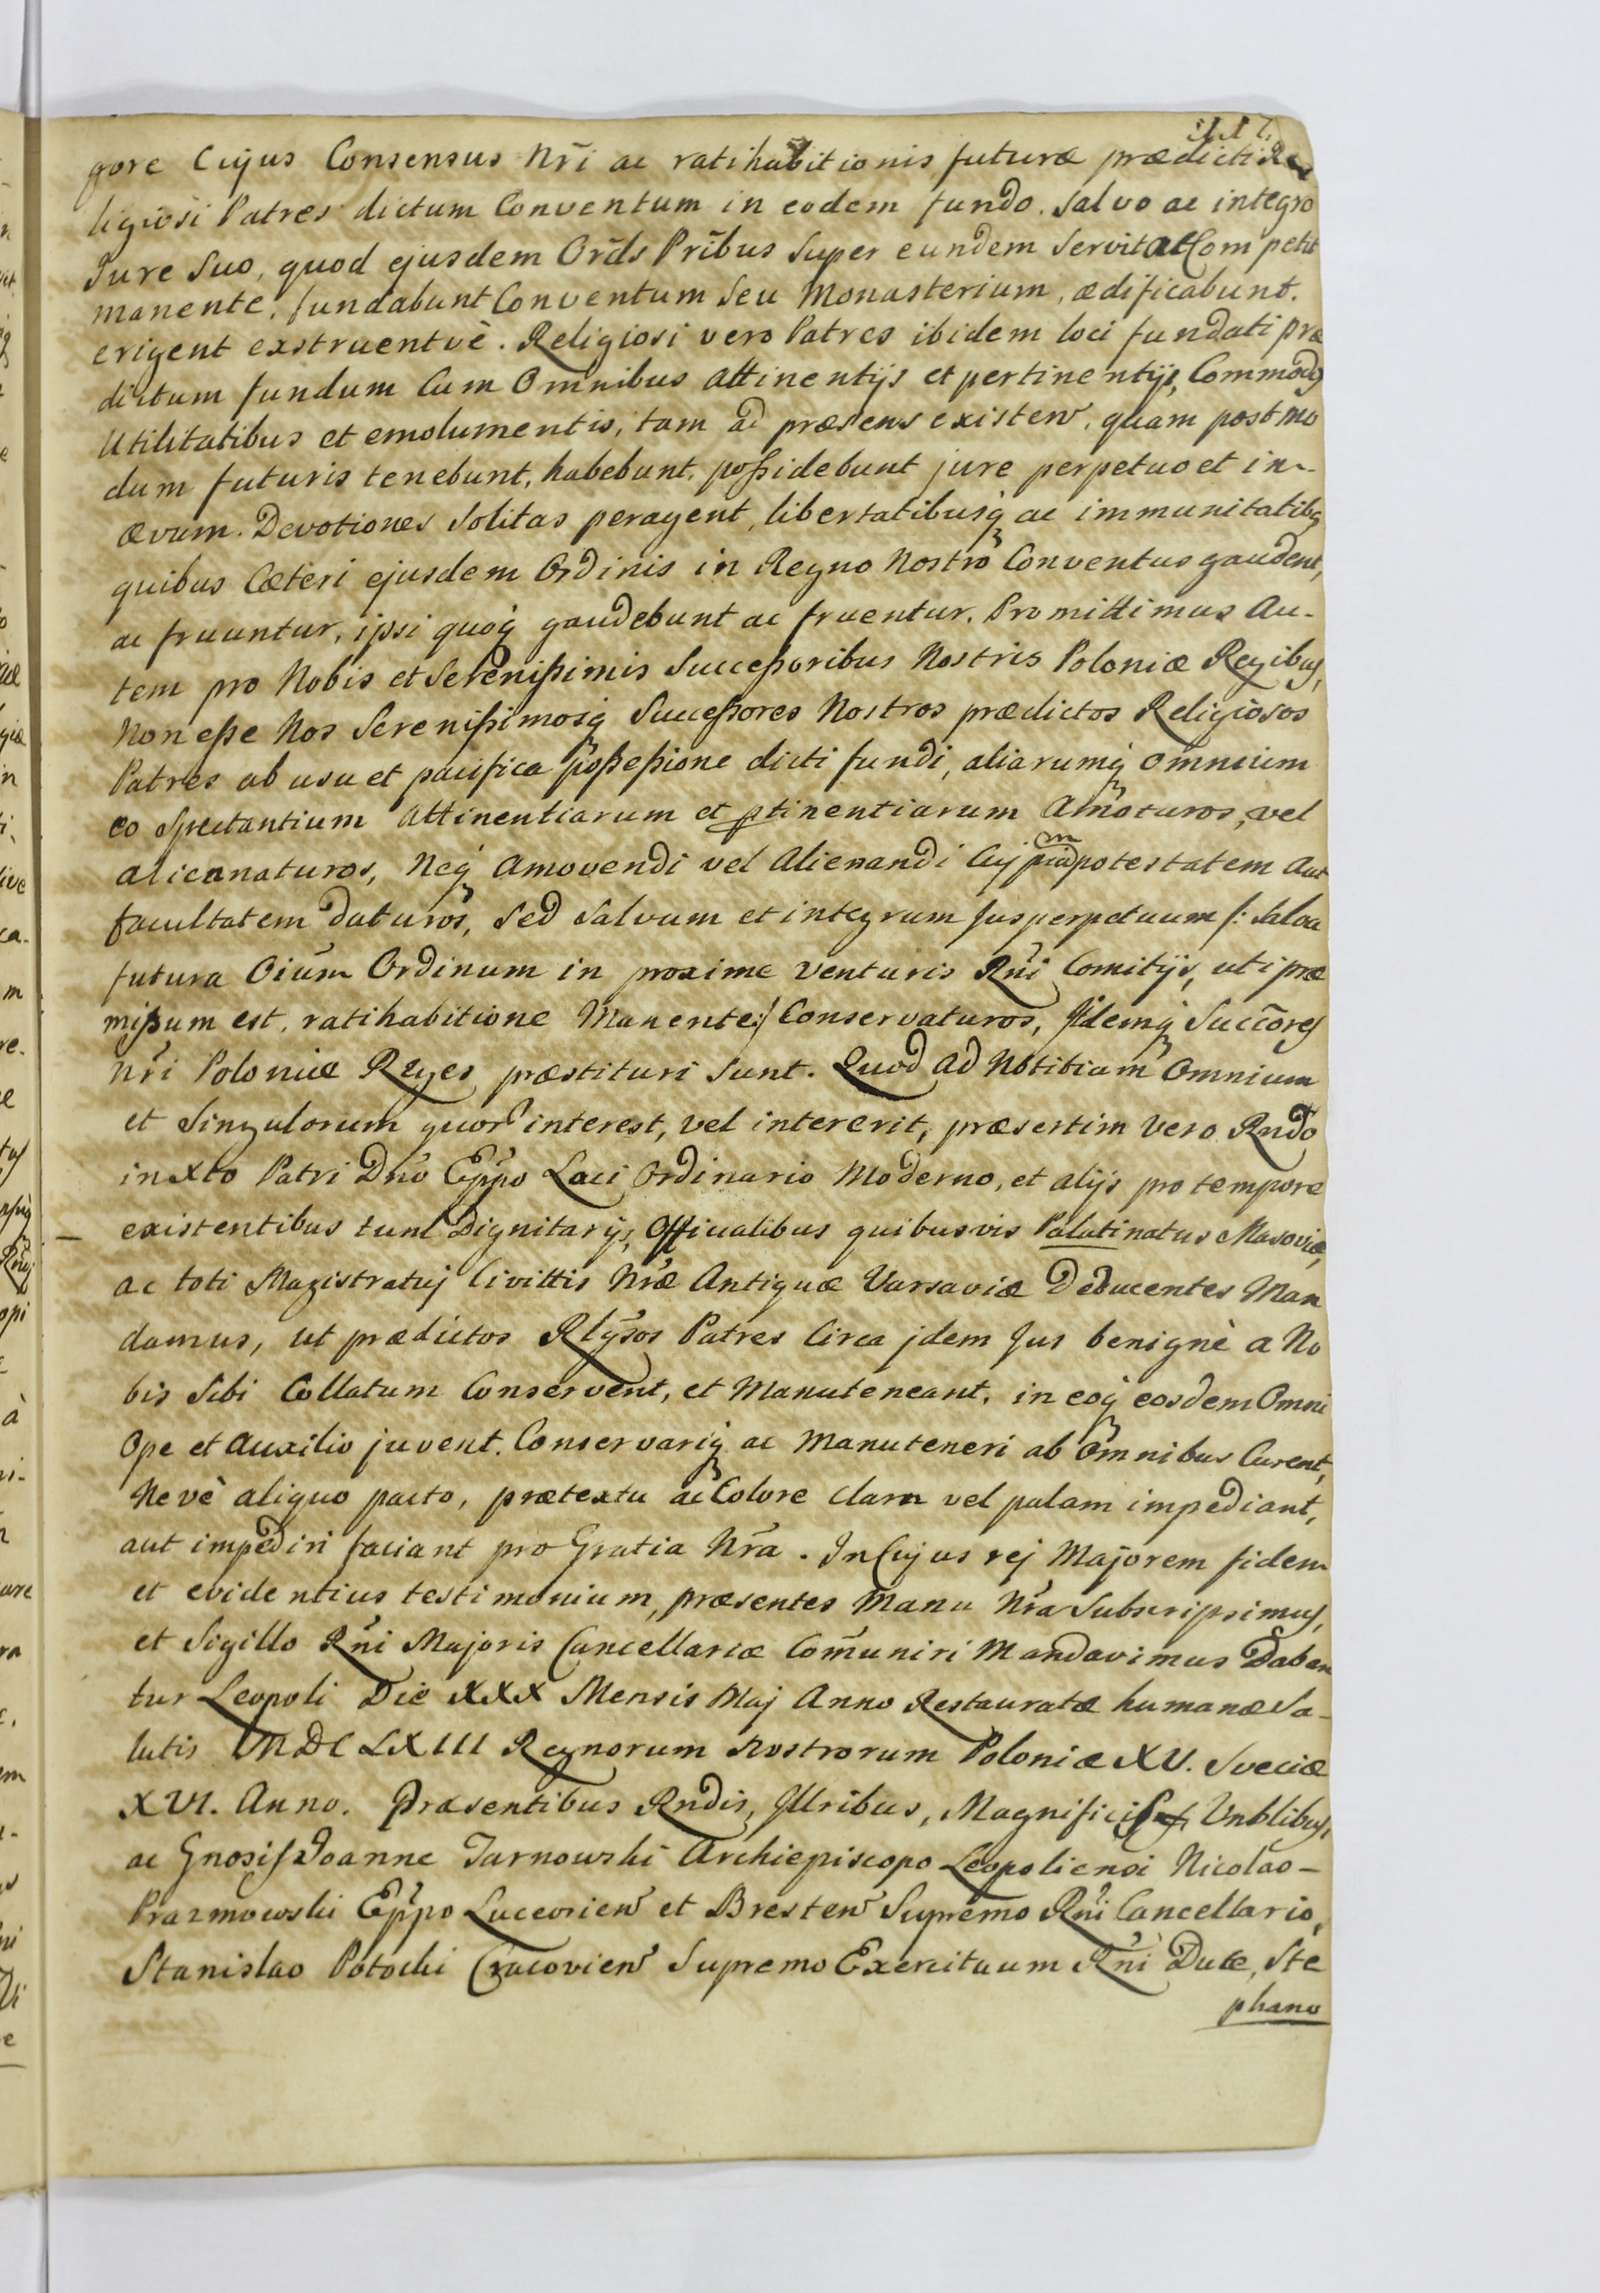 gore Cujus Consensus Nr̃i ac ratihabitionis futuræ prædicti Re
ligiosi Patres dictum Conventum in eodem fundo. Salvo ac integro
Jure Suo, quod ejusdem Ord̃s Pr̃ibus Super eundem Servit ac Competit
manente, fundabunt Conventum Seu Monasterium, ædificabunt.
erigent exstruentvè. Religiosi vero Patres ibidem loci fundati præ
dictum fundum Cum Omnibus attinentijs et pertinentijs, Commodis
Utilitatibus et emolumentis, tam ad præsens existen̄, quam postmo
dum futuris tenebunt, habebunt, poßidebunt jure perpetuo et in-
ævum. Devotiones Solitas peragent, libertatibusq̢ ac immunitatibq
quibus Cæteri ejusdem Ordinis in Regno Nostro Conventus gaudent,
ac fruuntur, ipsi quoq̢ gaudebunt ac fruentur. Promittimus Au-
tem pro Nobis et Sereníßimis Succeßoribus Nostris Poloniæ Regibus,
Non eße Nos Sereníßimosq̢ Succeßores Nostros prædictos Religiosos
Patres ab usu et pacifica poßeßione dicti fundi, aliarumq̢ omnium
eo Spectantium attinentiarum et ptinentiarum Amoturos, vel
alienaturos, Neq̢ Amovendi vel Alienandi Cuj piam potestatem Aut
facultatem daturos, Sed Salvum et integrum Jus perpetuum /: Salva
futura Oiũm Ordinum in proxime venturis Rñi Comitijs, uti præ
mißum est, ratihabitione Manente :/ Conservaturos, Jdemq̢ Succõres
Nr̃i Poloniæ Reges præstituri Sunt. Quod ad Notitiam Omnium
et Singulorum quor̃ interest, vel intererit, præsertim vero Rndo
in Xto Patri Dño Ep̃po Loci Ordinario Moderno, et alijs pro tempore
existentibus tunc Dignitarijs, Officialibus quibusvis Palatinatus Masoviæ,
ac toti Magistratuj Civittis Nr̃æ Antiquæ Varsaviæ Deducentes Man
damus, ut prædictos Rlg̃sos Patres Circa jdem Jus benignè a No
bis Sibi Collatum Conservent, et Manuteneant, in eoq̢ eosdem Omni
Ope et Auxilio juvent. Conservariq̢ ac Manuteneri ab Omnibus Curent,
Nevè aliquo pacto, prætextu ac Colore clam vel palam impediant,
aut impediri faciant pro Gratia Nr̃a. In Cujus rej Majorem fidem
et evidentius testimonium, præsentes Manu Nr̃a Subscripsimus,
et Sigillo Rñi Majoris Cancellariæ Com̃uniri Mandavimus Daban
tur Leopoli Die XXX Mensis Maj Anno Restauratæ humanæ Sa-
lutis MDCLXIII Regnorum Nostrorum Poloniæ XV. Sveciæ
XVI. Anno. Præsentibus Rndis, Jllribus, Magnificis, Vnblibus,
ac Gnosis Joanne Tarnowski Archiepiscopo Leopoliensi Nicolao-
Prazmowski Ep̃po Luceorien̄ et Bresten̄ Supremo Rñi Cancellario,
Stanislao Potocki Cracovien̄ Supremo Exercituum Rñi Duce, Ste
phano